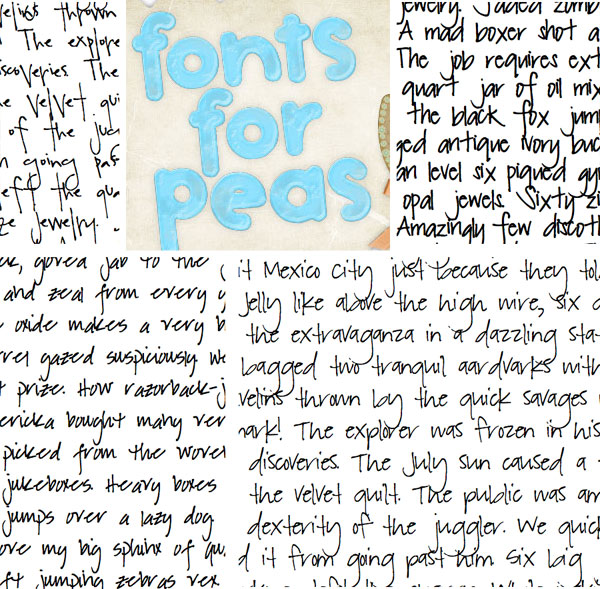 thrown
The explore
discoveries. The
velvet qui
of the
going pas
left the qua
jewelry.
fonts
for
peas
jewelry. Jaded zomb
A mad boxer shot a
The job requires ext
quart jar of oil mix
the black fox jum
ged antique ivory buc
an level six piqued gy
opal jewels. Sixty zi
Amazingly few discoth
gored jab to the
and zeal from every
oxide makes a very b
gazed suspiciously we
prize. How razorback-j
ericka bought many ver
picked from the
jukeboxes. Heavy boxes
jumps over a lazy dog
my big sphinx of qu
jumping zebras vex
it Mexico City just because they tol
Jelly like above the high wire, six
the extravaganza in a dazzling sta
bagged two tranquil aardvarks with
velins thrown by the quick savages
mark! The explorer was frozen in his
discoveries. The July sun caused a
the velvet quilt. The public was am
dexterity of the juggler. We quick
d it from going past him. Six big